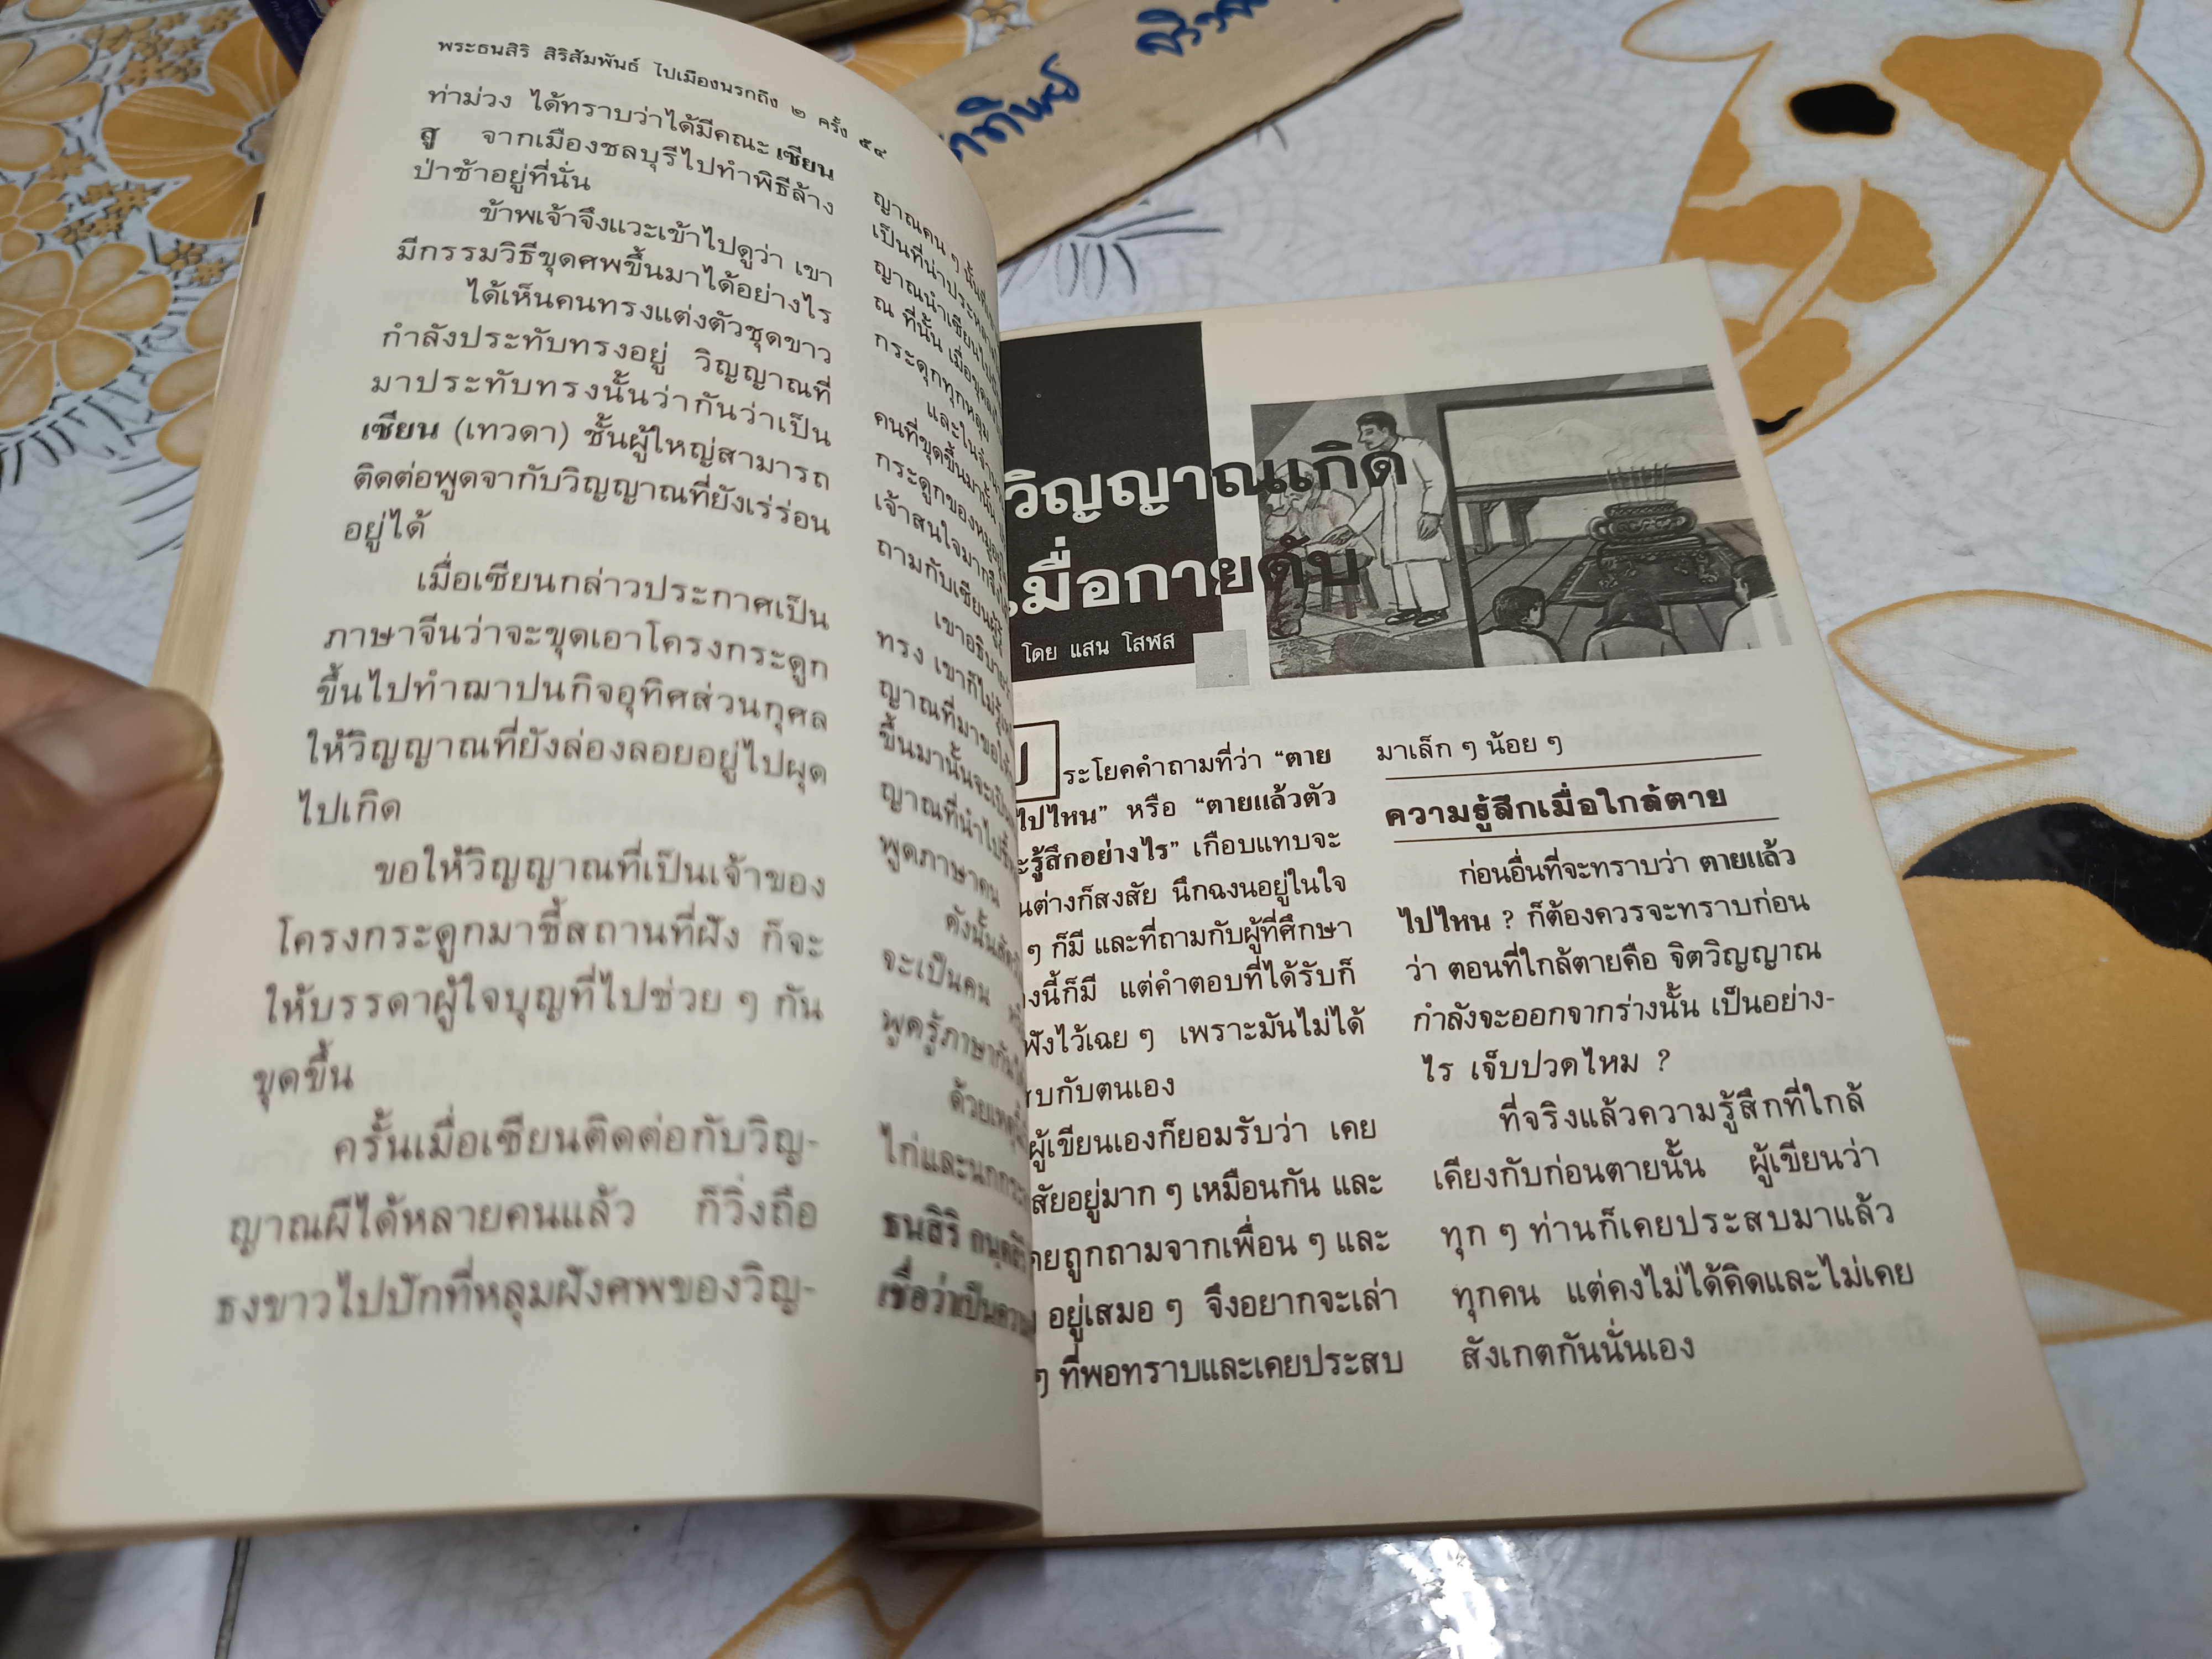 พระธนสิริ สิริสัมพันธ์ ไปเมืองนรกถึง ๒ ครั้ง ๕๙
ท่าม่วง ได้ทราบว่าได้มีคณะ เซียน
สู จากเมืองชลบุรีไปทำพิธีล้าง
ป่าช้าอยู่ที่นั่น
ข้าพเจ้าจึงแวะเข้าไปดูว่า เขา
มีกรรมวิธีขุดศพขึ้นมาได้อย่างไร
ได้เห็นคนทรงแต่งตัวชุดขาว
กำลังประทับทรงอยู่ วิญญาณที่
มาประทับทรงนั้นว่ากันว่าเป็น
เซียน (เทวดา) ชั้นผู้ใหญ่สามารถ
ติดต่อพูดจากับวิญญาณที่ยังเร่ร่อน
อยู่ได้
เมื่อเซียนกล่าวประกาศเป็น
ภาษาจีนว่าจะขุดเอาโครงกระดูก
ขึ้นไปทำฌาปนกิจอุทิศส่วนกุศล
ให้วิญญาณที่ยังล่องลอยอยู่ไปผุด
ไปเกิด
ขอให้วิญญาณที่เป็นเจ้าของ
โครงกระดูกมาชี้สถานที่ฝัง ก็จะ
ให้บรรดาผู้ใจบุญที่ไปช่วย ๆ กัน
ขุดขึ้น
ครั้นเมื่อเซียนติดต่อกับวิญ-
ญาณผีได้หลายคนแล้ว ก็วิ่งถือ
ธงขาวไปปักที่หลุมฝังศพของวิญ-
ญาณคน ๆ นั้น
เป็นที่น่าประหลาด
ญาณนำเซียนไป
ณ ที่นั้น เมื่อขุด
กระดูกทุกหลุม
และใน
คนที่ขุดขึ้นมานั้น
กระดูกของหมู
เจ้าสนใจมาก
ถามกับเซียน
เขาอธิบาย
ทรง เขาก็ไม่รู้
ญาณที่มาขอให้
ขึ้นมานั้นจะเป็น
ญาณที่นำไป
พูดภาษาคน
ดังนั้น
จะเป็นคน
พูดรู้ภาษากัน
ด้วยเหตุ
ไก่และนก
ธนสิริ
เชื่อว่าเป็น
วิญญาณเกิด
เมื่อกายดับ
โดย แสน โสฬส
ป
ระโยคคำถามที่ว่า “ตาย
ไปไหน” หรือ “ตายแล้วตัว
รู้สึกอย่างไร” เกือบแทบจะ
ต่างก็สงสัย นึกฉงนอยู่ในใจ
ๆ ก็มี และที่ถามกับผู้ที่ศึกษา
นี้ก็มี แต่คำตอบที่ได้รับก็
ฟังไว้เฉย ๆ เพราะมันไม่ได้
กับตนเอง
ผู้เขียนเองก็ยอมรับว่า เคย
สัยอยู่มาก ๆ เหมือนกัน และ
ถูกถามจากเพื่อน ๆ และ
อยู่เสมอ ๆ จึงอยากจะเล่า
ๆ ที่พอทราบและเคยประสบ
มาเล็ก ๆ น้อย ๆ
ความรู้สึกเมื่อใกล้ตาย
ก่อนอื่นที่จะทราบว่า ตายแล้ว
ไปไหน ? ก็ต้องควรจะทราบก่อน
ว่า ตอนที่ใกล้ตายคือ จิตวิญญาณ
กำลังจะออกจากร่างนั้น เป็นอย่าง-
ไร เจ็บปวดไหม ?
ที่จริงแล้วความรู้สึกที่ใกล้
เคียงกับก่อนตายนั้น ผู้เขียนว่า
ทุก ๆ ท่านก็เคยประสบมาแล้ว
ทุกคน แต่คงไม่ได้คิดและไม่เคย
สังเกตกันนั่นเอง